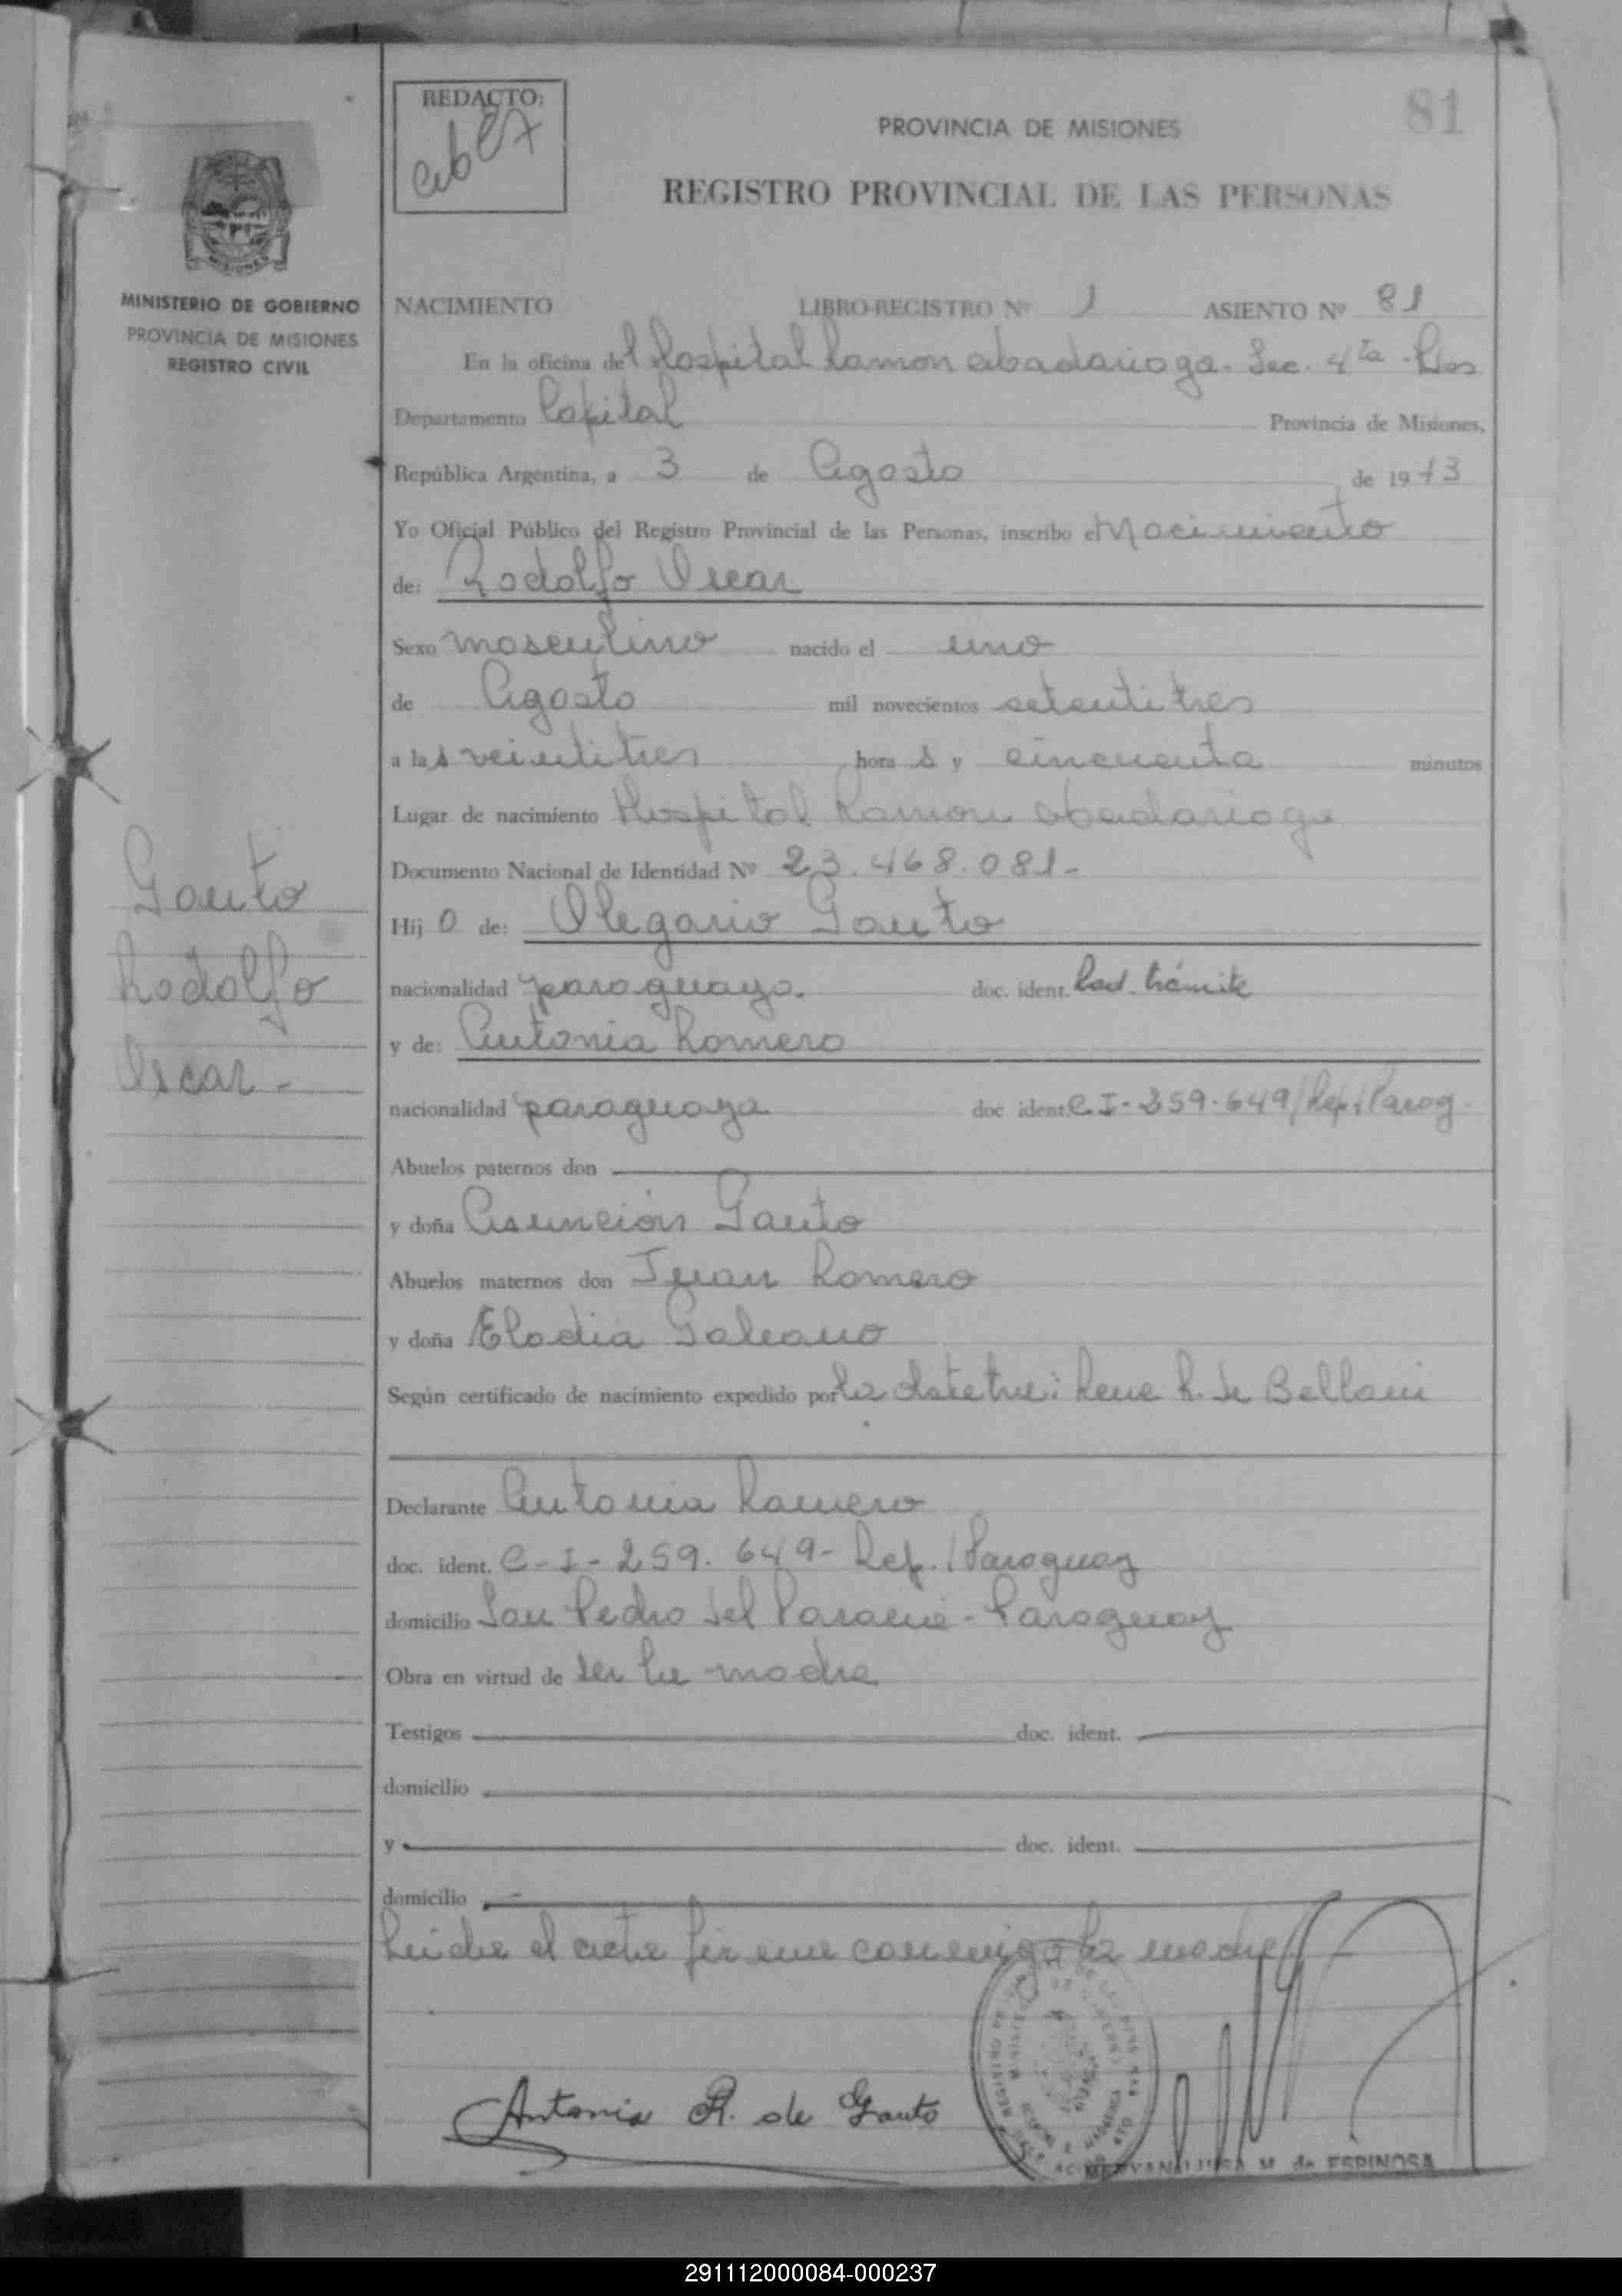 REDACTO:
81
PROVINCIA DE MISIONES
REGISTRO PROVINCIAL DE LAS PERSONAS
MISIONES
MINISTERIO DE GOBIERNO
PROVINCIA DE MISIONES
REGISTRO CIVIL
NACIMIENTO LIBRO-REGISTRO Nº 1 ASIENTO Nº 81
En la oficina del Hospital Ramon abadarioga. Sec. 4ta - Pdas
Departamento Capital Provincia de Misiones,
República Argentina, a 3 de Agosto de 1973
Yo Oficial Público del Registro Provincial de las Personas, inscribo el Nacimiento
de: Rodolfo Oscar
Sexo masculino nacido el uno
de Agosto mil novecientos setentitres
a las veintitres horas y cincuenta minutos
Lugar de nacimiento Hospital Ramon abadarioga
Documento Nacional de Identidad Nº 23.468.081-
Hijo de: Olegario Gauto
nacionalidad paraguaya. doc. ident. Rad. trámite
y de: Antonia Romero
nacionalidad paraguaya doc ident. C.I- 259.649/Rep./Parag.
Abuelos paternos don
y doña Asunción Gauto
Abuelos maternos don Juan Romero
y doña Elodia Galeano
Según certificado de nacimiento expedido por la obstetra: Rene R. de Bellani
Gauto
Rodolfo
Oscar -
Declarante Antonia Romero
doc. ident. C-I-259.649- Rep./Paraguay
domicilio San Pedro del Paraná - Paraguay
Obra en virtud de ser la madre
Testigos doc. ident.
domicilio
y doc. ident.
domicilio
Leida el acta firma conmigo la madre
Antonia R. de Gauto
M. de ESPINOSA
291112000084-000237